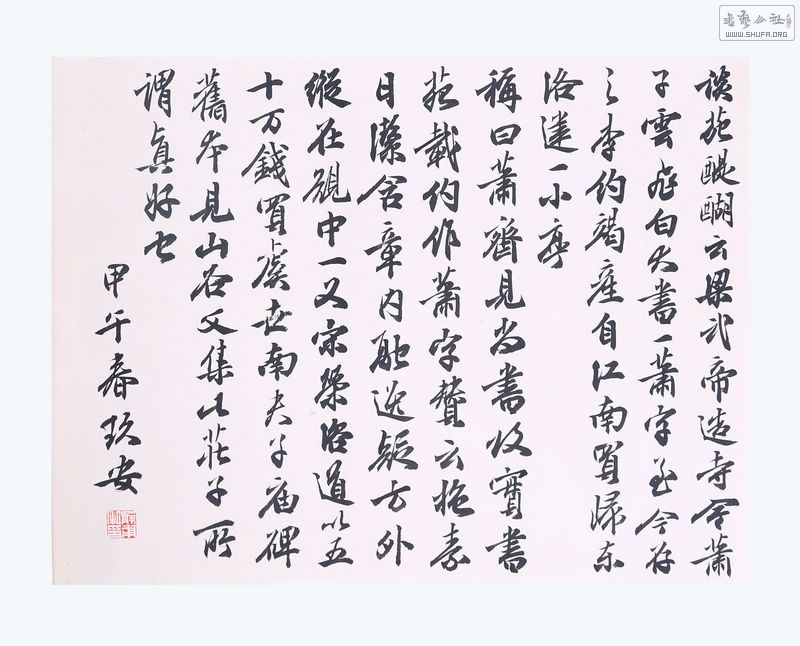 談苑醍醐云梁武帝造寺令蕭
子雲飛白大書一蕭字至今存
之李約竭產自江南買歸東
洛建一小亭
稱曰蕭齋見尚書故實書
苑載約作蕭字贊云抱素
日潔含章内融逸疑方外
縱在矩中一又宋榮咨道以五
十万錢買虞世南夫子庙碑
舊本見山谷文集此莊子所
謂真好也
甲午春玖安
書藝公社
WWW.SHUFA.ORG